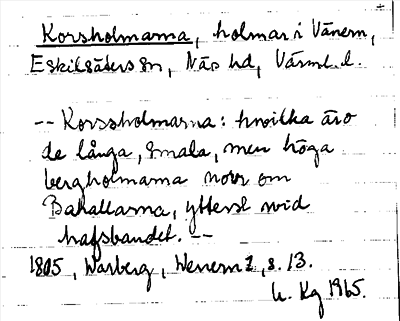 Korsholmarna, holmar i Vänern,
Eskilsäters sn, Näs hd, Värml. l.
-- Korssholmarna: hvilka äro
de långa, smala, men höga
bergholmarna norr om
Bakallarna, ytterst wid
hafsbandet. --
1805, Warberg, Wenern 1, s. 13.
U. Kg 1965.